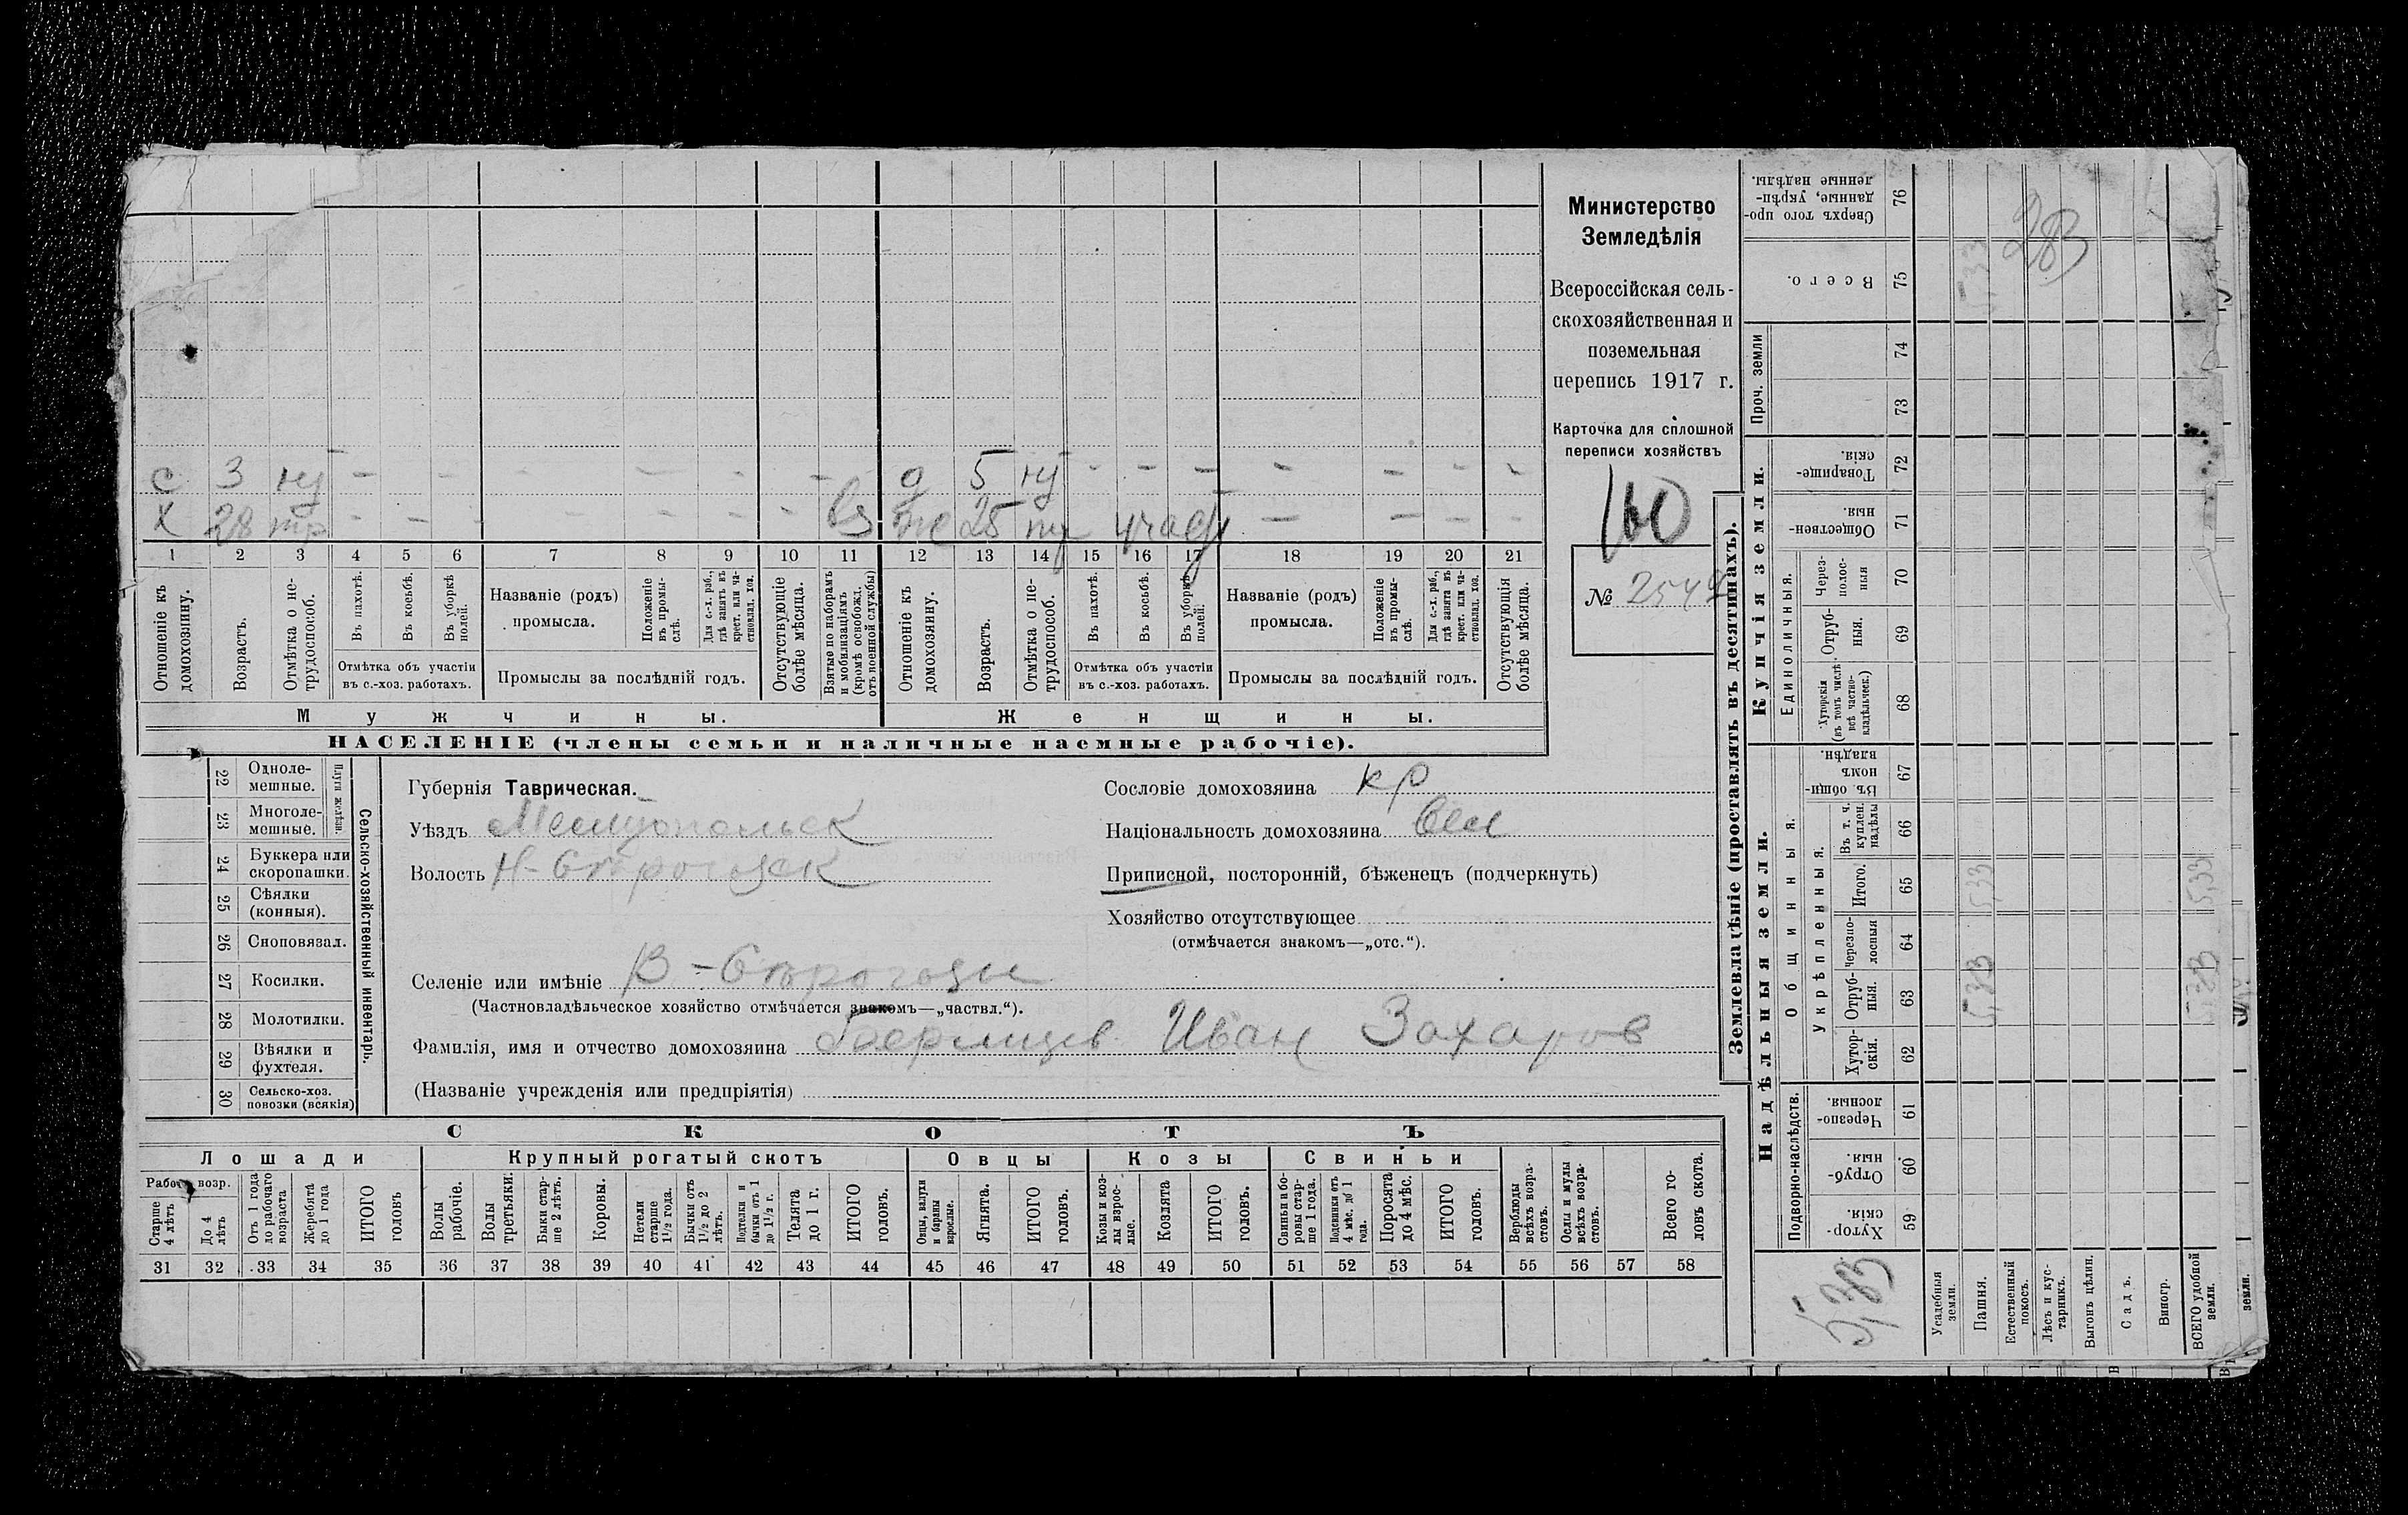 с 3 нт — — — — — — — д 5 нт — — — — — — —
х 28 тр — — — — — — — вз ж 25 тр — — —
1 2 3 4 5 6 7 8 9 10 11 12 13 14 15 16 17 18 19 20 21
Отношеніе къ домохозяину.
Возрастъ.
Отмѣтка о не-трудоспособ.
Въ пахотѣ.
Въ косьбѣ.
Въ уборкѣ полей.
Отмѣтка объ участіи въ с.-хоз. работахъ.
Названіе (родъ) промысла.
Положеніе въ промы-слѣ.
Для с.-х. раб., гдѣ занятъ въ крест. или ча-стновлад. хоз.
Промыслы за послѣдній годъ.
Отсутствующіе болѣе мѣсяца.
Взятые по наборамъ и мобилизаціямъ (кромѣ освобожд. отъ военной службы)
Отношеніе къ домохозяину.
Возрастъ.
Отмѣтка о не-трудоспособ.
Въ пахотѣ.
Въ косьбѣ.
Въ уборкѣ полей.
Отмѣтка объ участіи въ с.-хоз. работахъ.
Названіе (родъ) промысла.
Положеніе въ промы-слѣ.
Для с.-х. раб., гдѣ занята въ крест. или ча-стновлад. хоз.
Промыслы за послѣдній годъ.
Отсутствующія болѣе мѣсяца.
Мужчины.
Женщины.
НАСЕЛЕНІЕ (члены семьи и наличные наемные рабочіе).
Министерство
Земледѣлія
Всероссійская сель-
скохозяйственная и
поземельная
перепись 1917 г.
Карточка для сплошной
переписи хозяйствъ
№
22 Одноле-мешные.
23 Многоле-мешные.
Плуги желѣзн.
24 Буккера или скоропашки.
25 Сѣялки (конныя).
26 Сноповязал.
27 Косилки.
28 Молотилки.
29 Вѣялки и фухтеля.
30 Сельско-хоз. повозки (всякія)
Сельско-хозяйственный инвентарь.
Губернія Таврическая.
Уѣздъ Мелитопольск
Волость Н-Строгазск
Селеніе или имѣніе В-Строгозы
(Частновладѣльческое хозяйство отмѣчается знакомъ—„частвл.“).
Фамилія, имя и отчество домохозяина Иван Захаров
(Названіе учрежденія или предпріятія)
Сословіе домохозяина кр
Національность домохозяина
Приписной, посторонній, бѣженецъ (подчеркнуть)
Хозяйство отсутствующее
(отмѣчается знакомъ—„отс.“).
СКОТЪ
Лошади
Крупный рогатый скотъ
Овцы
Козы
Свиньи
Рабоч. возр.
Старше 4 лѣтъ
До 4 лѣтъ
Отъ 1 года до рабочаго возраста
Жеребята до 1 года
ИТОГО головъ
Волы рабочіе.
Волы третьяки.
Быки стар-ше 2 лѣтъ.
Коровы.
Нетели старше 1½ года.
Бычки отъ 1½ до 2 лѣтъ.
Подтелки и бычки отъ 1 до 1½ г.
Телята до 1 г.
ИТОГО головъ.
Овцы, валухи и бараны взрослые.
Ягнята.
ИТОГО головъ.
Козы и коз-лы взрос-лые.
Козлята
ИТОГО головъ.
Свиньи и бо-ровы стар-ше 1 года.
Подсвинки отъ 4 мѣс. до 1 года.
Поросята до 4 мѣс.
ИТОГО головъ.
Верблюды всѣхъ возра-стовъ.
Ослы и мулы всѣхъ возра-стовъ.
Всего го-ловъ скота.
31 32 33 34 35 36 37 38 39 40 41 42 43 44 45 46 47 48 49 50 51 52 53 54 55 56 57 58
Землевладѣніе (проставлять въ десятинахъ).
Надѣльныя земли.
Купчія земли.
Проч. земли
Подворно-наслѣдств.
Общинныя.
Укрѣпленныя.
Единоличныя.
Хутор-скія. 59
Отруб-ныя. 60
Черезпо-лосныя. 61
Хутор-скія. 62
Отруб-ныя. 63
Черезпо-лосныя 64
Итого. 65
Въ т. ч. куплен. надѣлы 66
Въ общи-номъ владѣн. 67
Хуторскія (въ томъ числѣ всѣ частно-владѣльческ.) 68
Отруб-ныя. 69
Через-полос-ныя 70
Обществен-ныя. 71
Товарище-скія. 72
73
74
Всего. 75
Сверхъ того про-данные, укрѣп-ленные надѣлы. 76
Усадебныя земли.
Пашня. 5,33 5,33 5,33
Естественный покосъ.
Лѣсъ и кус-тарникъ.
Выгонъ цѣлин.
Садъ.
Виногр.
ВСЕГО удобной земли. 5,33 5,33
земли.
283